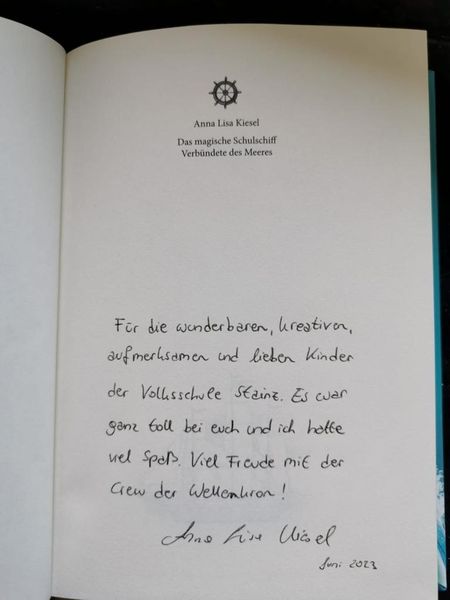 Anna Lisa Kiesel
Das magische Schulschiff
Verbündete des Meeres
Für die wunderbaren, kreativen,
aufmerksamen und lieben Kinder
der Volksschule Stainz. Es war
ganz toll bei euch und ich hatte
viel Spaß. Viel Freude mit der
Crew der Wellenkron!
Anna Lisa Kiesel
Juni 2023